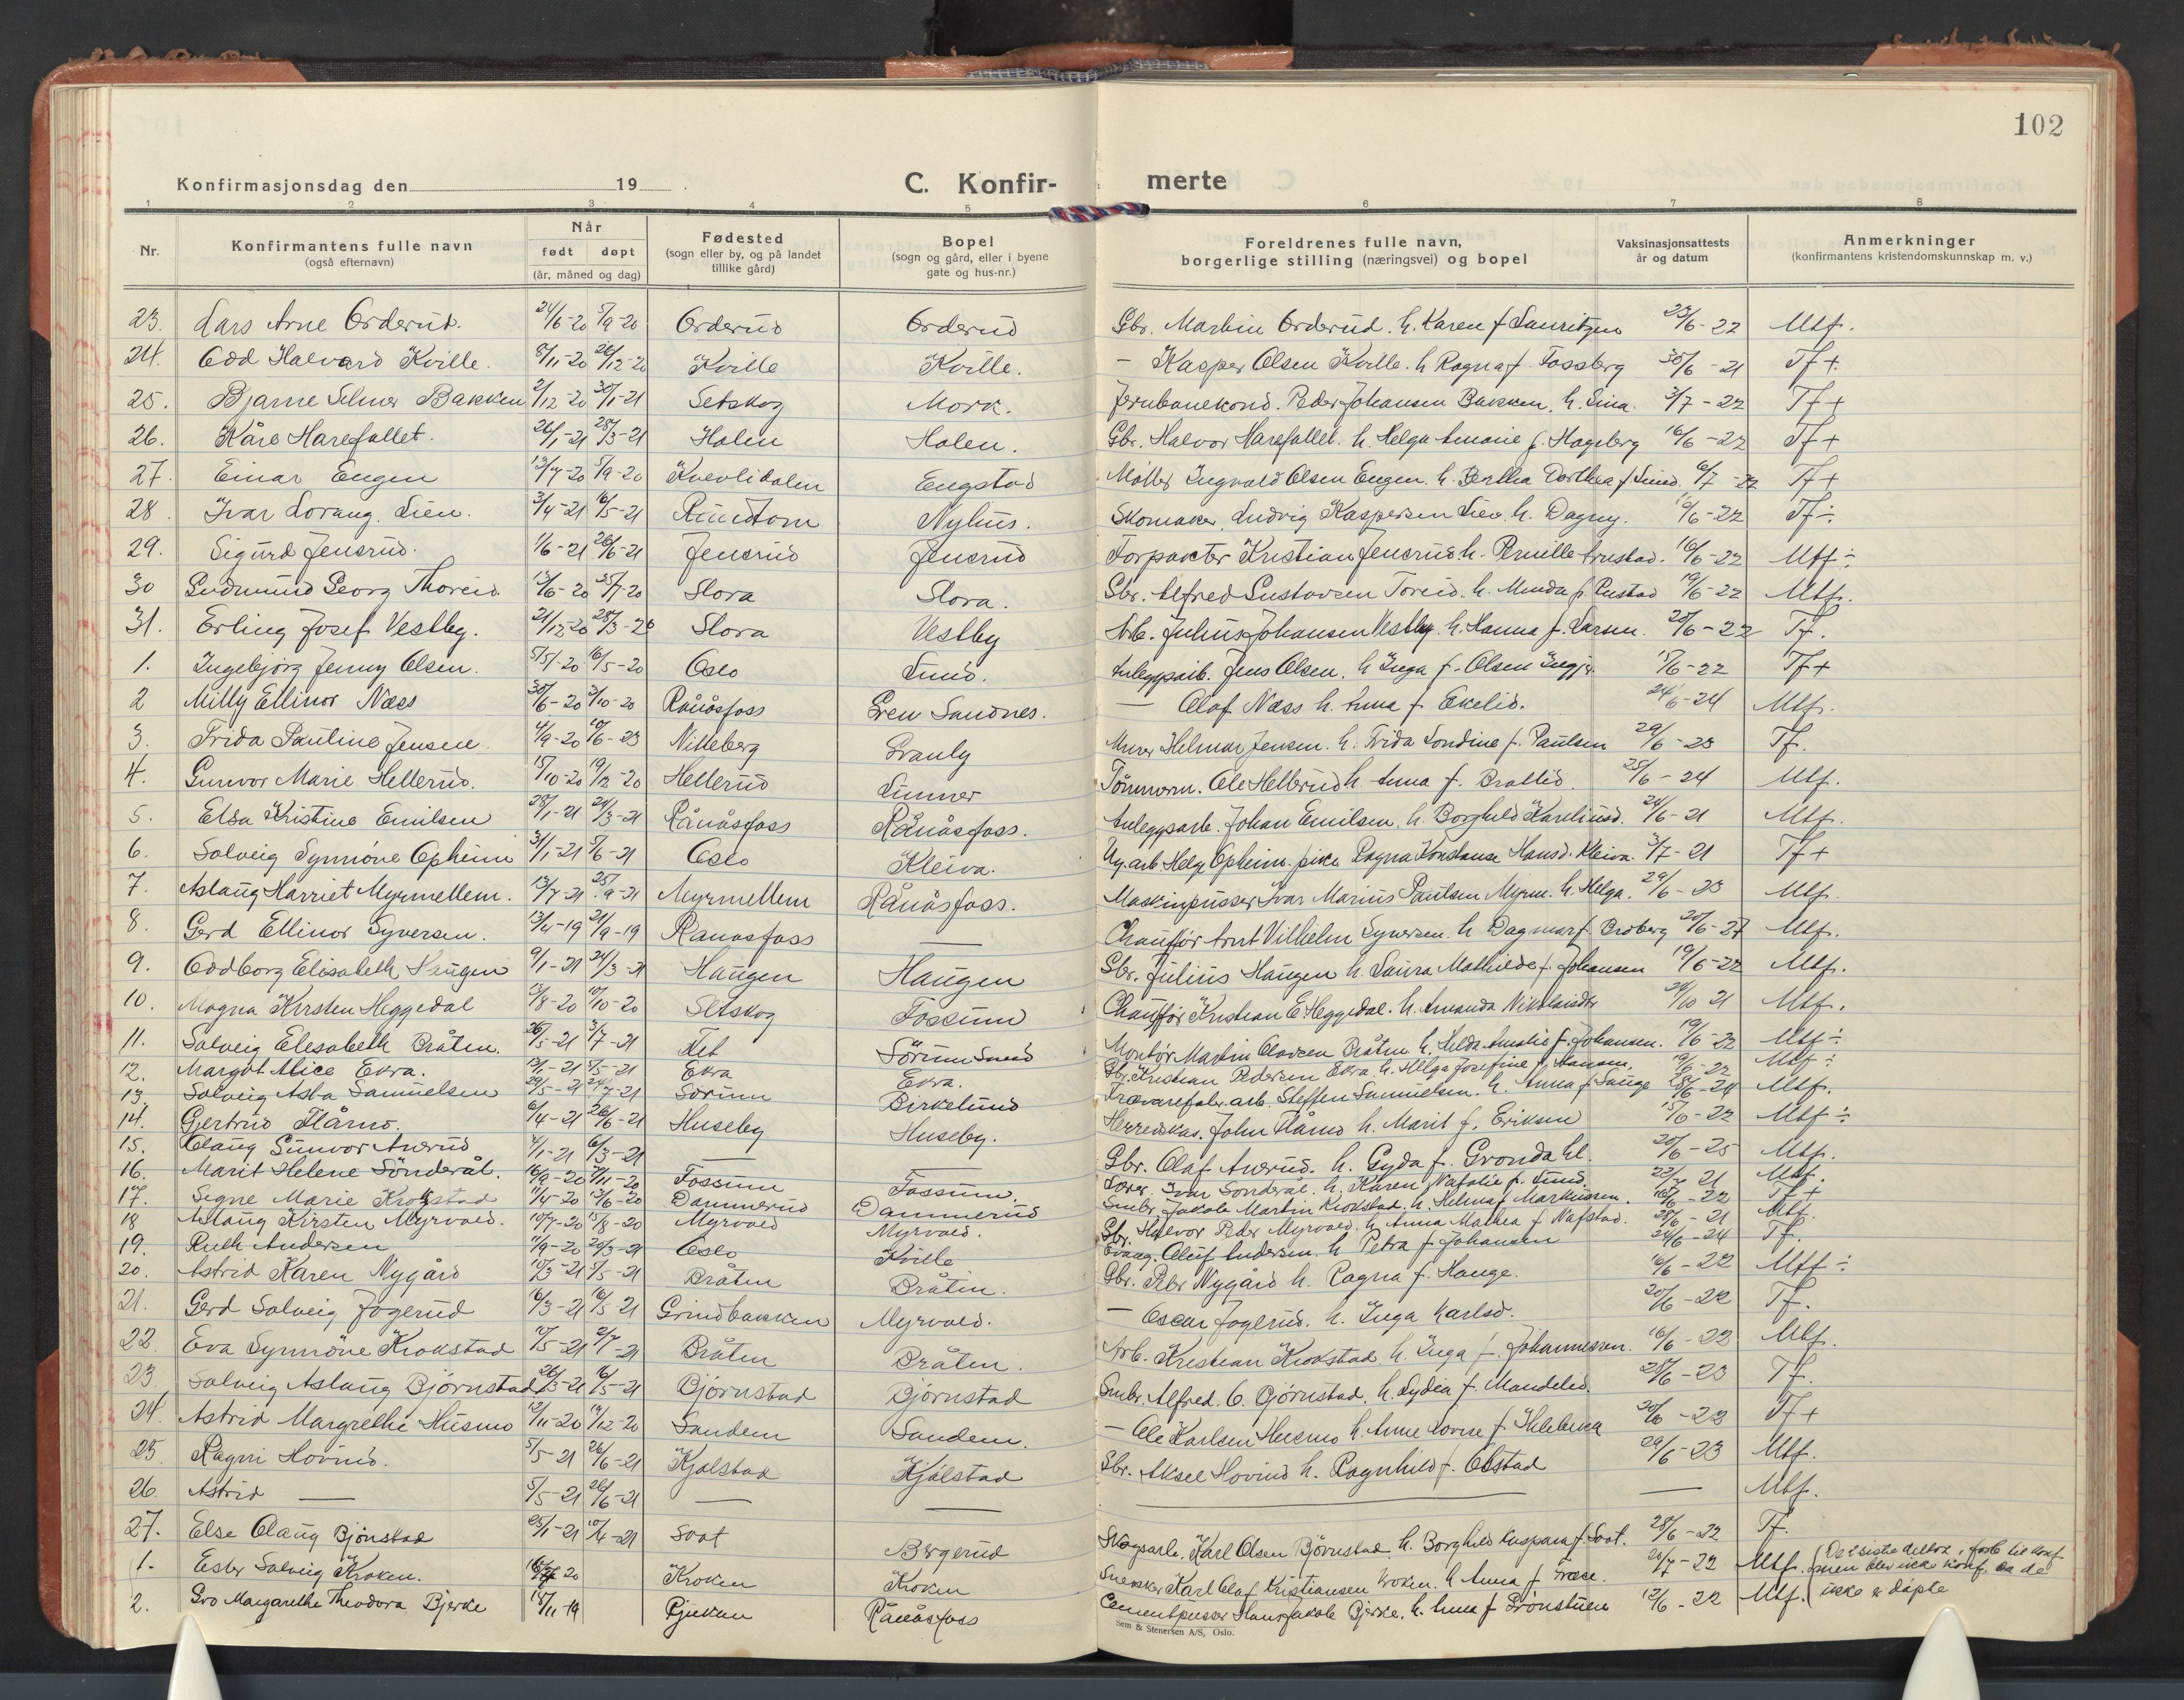 102
Konfirmasjonsdag den 19 C. Konfir- merte
1 2 3 4 5 6 7 8
Nr. Konfirmantens fulle navn (også efternavn) Når født døpt (år, måned og dag) Fødested (sogn eller by, og på landet tillike gård) Bopel (sogn og gård, eller i byene gate og hus-nr.) Foreldrenes fulle navn, borgerlige stilling (næringsvei) og bopel Vaksinasjonsattests år og datum Anmerkninger (konfirmantens kristendomskunnskap m. v.)
23. Lars Arne Orderud. 24/6-20 5/9-20 Orderud Orderud Gbr. Martin Orderud. h. Karen f Lauritzen 23/6-22 Mtf.
24. Odd Halvard Kville. 8/11-20 26/12-20 Kville Kville. — Kasper Olsen Kville. h Ragna f. Fossberg 30/6-21 Tf+.
25. Bjarne Selmer Bakken 2/12-20 30/1-21 Setskog Mork. Jernbanekond. Peder Johansen Bakken, h. Lina. 3/7-22 Tf+
26. Kåre Harefallet. 26/1-21 28/3-21 Holen Holen. Gbr. Halvor Harefallet. h. Helga Amarie f. Hageberg 16/6-22 Tf+
27. Einar Engen 13/7-20 5/9-20 Kvevlidalen Engstad Møller Ingvald Olsen Engen. h. Bertha Dorthea f Lund. 6/7-22 Tf+
28. Ivar Lorang. Lien. 3/4-21 16/5-21 Rundtom Nyhus. Skomaker Ludvig Kaspersen Lien. h. Dagny. 19/6-22 Tf÷
29. Sigurd Jensrud. 1/6-21 26/6-21 Jensrud Jensrud Forpakter Kristian Jensrud h. Pernille Arnstad. 16/6-22 Mtf÷
30 Gudmund Georg Thoreid 13/6-20 25/7-20 Slora Slora. Gbr. Alfred Gustavsen Toreid. h. Minda f. Rustad 19/6-22 Mtf.
31. Erling Josef Vestby. 21/12-20 28/3-20 Slora Vestby Arb. Julius Johansen Vestby. h. Hanna f. Larsen. 20/6-22 Tf.
1. Ingebjörg Jenny Olsen. 5/5-20 16/5-20 Oslo Lund. Anleggsarb. Jens Olsen. h Inga f. Olsen 15/6-22 Tf+
2 Milly Ellinor Næss 30/6-20 3/10-20 Rånåsfoss Gren Sandnes. — Olaf Næss h. Anna f. Ekelid. 24/6-24 Mtf.
3. Frida Pauline Jensen. 4/9-20 10/6-23 Nitteberg Granly Murer Helmar Jensen. h. Frida Londine f. Paulsen 29/6-23 Tf.
4. Gunvor Marie Hellerud. 15/10-20 19/12-20 Hellerud Linner Tömmerm. Ole Hellerud h. Anna f. Brattlid. 25/6-24 Mtf.
5. Elsa Kristine Emilsen 28/1-21 24/3-21 Rånåsfoss Rånåsfoss. Anleggsarb. Johan Emilsen, h. Borghild Kareliusd. 24/6-21 Mtf.
6. Solveig Synnöve Opheim 31/1-21 5/6-21 Oslo Kleiva. Ug. arb. Helge Opheim. pike Ragna Konstanse Hansd. Kleiva. 3/7-21 Tf+
7. Aslaug Harriet Myrmellem. 13/7-21 25/9-21 Myrmellem Rånåsfoss. Maskinpusser Ivar Marius Paulsen Myrm. h. Helga. 29/6-23 Mtf.
8. Gerd Ellinor Syversen. 13/4-19 21/9-19 Ranasfoss — Chauffør Arnt Vilhelm Syversen. h Dagmar f. Broberg 20/6-27 Mtf.
9. Oddborg Elisabeth Haugen 9/1-21 24/3-21 Haugen Haugen Gbr. Julius Haugen h. Laura Mathilde f. Johansen 19/6-22 Mtf.
10. Magna Kirsten Heggedal 13/8-20 10/10-20 Setskog Fossum Chauffør Kristian E Heggedal. h. Amanda 24/10 21 Mtf.
11. Solveig Elisabeth Bråten. 26/5-21 3/7-21 Fet Sörum Sand Montør Martin Olavsen Bråten h. Hilda Amalie f. Johansen. 19/6-22 Mtf÷
12. Margot Alice Ekra. 12/1-21 5/5-21 Ekra Ekra. Gbr. Kristian Pedersen Ekra. h. Helga Josefine f. Hansen. 19/6-22 Mtf÷
13. Solveig Asta Samuelsen 29/5-21 24/7-21 Sörum Birkelund Trævarefabr. arb. Steffen Samuelsen. h. Anna f Sauge 28/6-24 Mtf.
14. Gjertrud Flåmo. 6/4-21 26/6-21 Huseby Huseby. Herredskas. John Flåmo h. Marit f. Eriksen 15/6-22 Mtf÷
15. Olaug Gunvor Anerud 4/1-21 6/3-21 — Gbr. Olaf Anerud. h. Gyda f. Grondahl. 20/6-25 Mtf.
16. Marit Helene Sönderål. 16/9-20 7/11-20 Fossum Fossum. Lærer Ivar Sonderål. h. Karen Natalie f. Lund. 22/7 21 Mtf.
17. Signe Marie Krokstad 11/4-20 13/6-20 Dammerud Dammerud Smbr. Jakob Martin Krokstad. h. Helma f Markussen. 16/6-22 Tf+
18 Aslaug Kirsten Myrvold. 10/7-20 15/8-20 Myrvold Myrvold. Gbr. Halvor Peder Myrvold. h Anna Mathea f Nafstad. 28/6-21 Mtf.
19. Ruth Andersen 11/9-20 20/3-21 Oslo Kville Evang. Oluf Andersen. h Petra f Johansen 24/6-24 Tf.
20. Astrid Karen Nygård 10/3-21 5/5-21 Bråten Bråten. Gbr. Peder Nygård h. Ragna f. Hauge. 16/6-22 Mtf÷
21. Gerd Solveig Jogerud 6/3-21 16/5 21 Grindbakken Myrvold. — Oscar Jogerud. h. Inga Karlsd. 20/6-22 Tf.
22. Eva Synnöve Krokstad 17/5-21 2/7-21 Bråten Bråten. Arb. Kristian Krokstad h. Inga f. Johannessen. 16/6-22 Mtf.
23. Solveig Aslaug Björnstad 26/3-21 16/5-21 Björnstad Björnstad Smbr. Alfred. O. Björnstad. h. Lydia f. Mandelid. 28/6-23 Tf.
24. Astrid Margrethe Husmo 12/11-20 19/12-20 Sandem Sandem. — Ole Karlsen Husmo h. Anne Lovise f 20/6-23 Tf+
25. Ragni Hovind. 5/5-21 26/6-21 Kjølstad Kjølstad Gbr. Aksel Hovind h. Ragnhild f. Olstad 29/6-23 Mtf.
26. Astrid — 5/5-21 26/6-21 — — — — Mtf.
27. Else Olaug Björnstad 25/1-21 10/4-21 Soot Börgerud Skogsarb. Karl Olsen Björnstad h. Borghild Kaspara f. Soot. 28/6-22 Tf.
1. Ester Solveig Kroken. 20 Kroken Kroken Snekker Karl Olaf Kristiansen Kroken. h Anna f Fræse. 20/7-22 Mtf. (De 2 siste deltok i forb. til konf.
men blev ikke konf. da de
2. Gro Margarethe Theodora Bjerke 18/11-19 Rjukan Rånåsfoss Cementpusser Hans Jakob Bjerke. h. Anna f Grönstuen 12/6-22 Mtf. ikke er döpte
Sem & Stenersen A/S, Oslo.